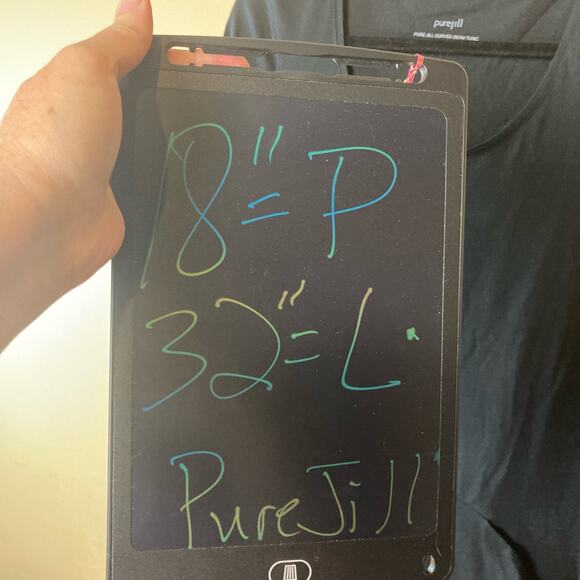 purejill
PURE JILL CURVED-SEAM TUNIC
18"=P
32"=L
PureJill